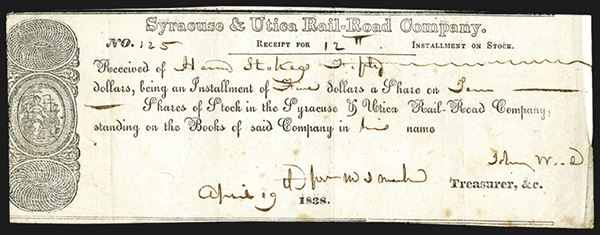 Syracuse & Utica Rail-Road Company.
No. 125 Receipt for 12th Installment on Stock.
Received of Stokes Fifty
dollars, being an Installment of Five dollars a Share on Ten
Shares of Stock in the Syracuse & Utica Rail-Road Company,
standing on the Books of said Company in his name
John
Treasurer, &c.
April 19 1838.